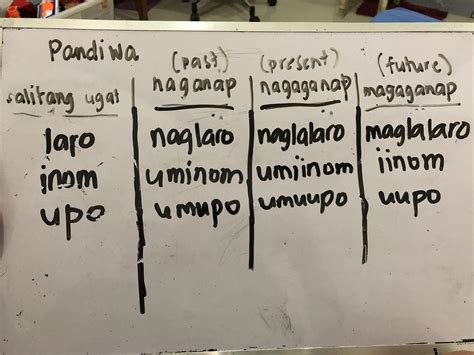 Pandiwa
(past) (present) (future)
salitang ugat naganap nagaganap magaganap
laro naglaro naglalaro maglalaro
inom uminom umiinom iinom
upo umupo umuupo uupo